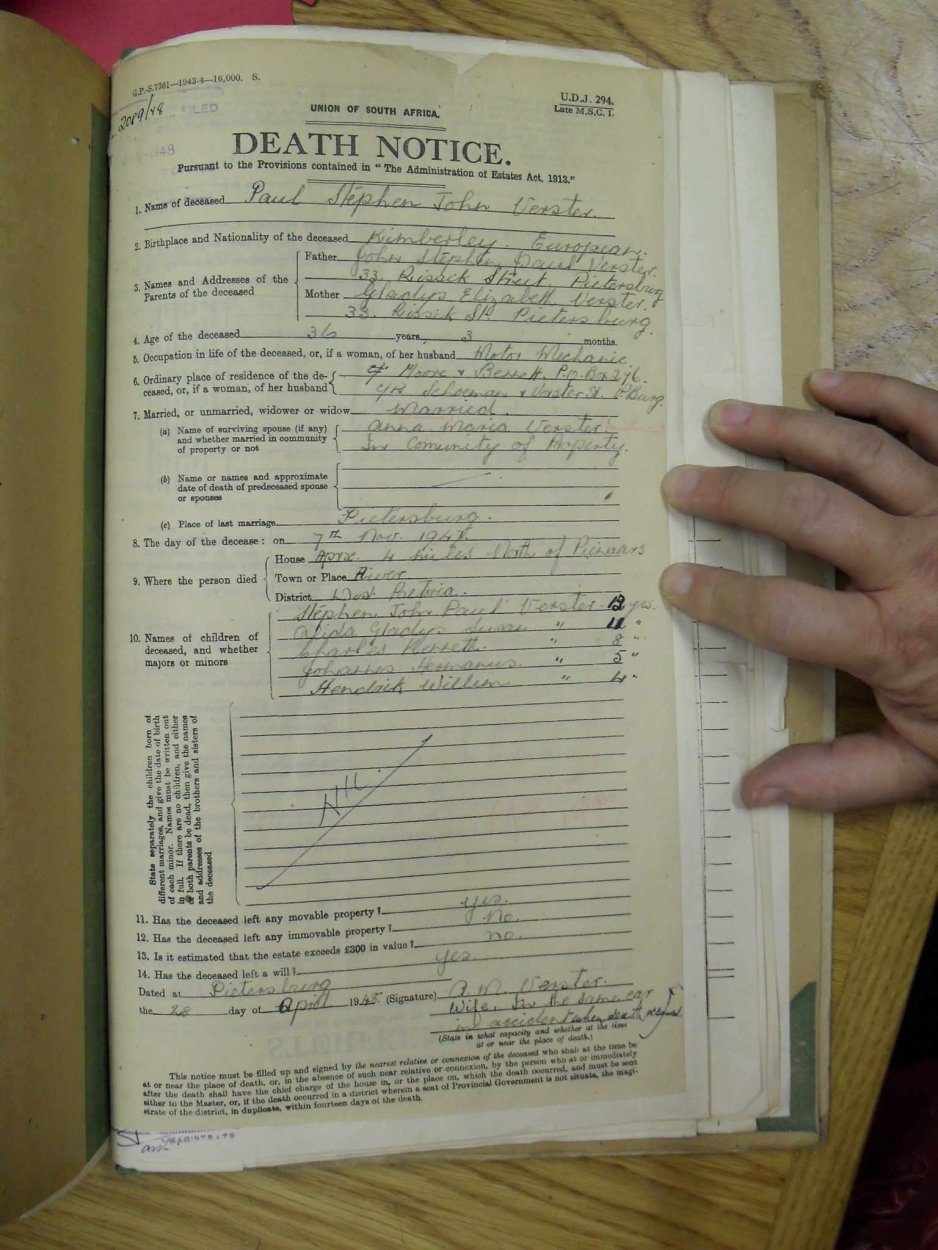 G.P.-S.7361—1943-4—16,000. S.
2089/48
FILED
UNION OF SOUTH AFRICA.
U.D.J. 294.
Late M.S.C. 1.
DEATH NOTICE.
Pursuant to the Provisions contained in "The Administration of Estates Act, 1913."
1. Name of deceased Paul Stephen John Verster.
2. Birthplace and Nationality of the deceased Kimberley. European.
3. Names and Addresses of the Parents of the deceased
Father John Stephen Paul Verster.
33. Rissick Street Pietersburg
Mother Gladys Elizabeth Verster.
33. Rissik St. Pietersburg.
4. Age of the deceased 36 years, 3 months.
5. Occupation in life of the deceased, or, if a woman, of her husband Motor Mechanic
6. Ordinary place of residence of the deceased, or, if a woman, of her husband
Moore & P.O. Box 276.
Schoeman & Vorster St. P'Burg.
7. Married, or unmarried, widower or widow Married.
(a) Name of surviving spouse (if any) and whether married in community of property or not
Anna Maria Verster.
In Comunity of Property.
(b) Name or names and approximate date of death of predeceased spouse or spouses
(c) Place of last marriage Pietersburg.
8. The day of the decease: on 7th Nov. 1947.
9. Where the person died
House Aprx. 4 North of Pienaars
Town or Place River
District Pretoria.
10. Names of children of deceased, and whether majors or minors
Stephen John Paul Verster. 12 yrs.
Alida Gladys Susan " 11 "
Charles " 8 "
Johannes Hermanus. " 5 "
Hendrik Willem " 4 "
State separately the children born of different marriages, and give the date of birth of each minor. Names must be written out in full. If there are no children, and either or both parents be dead, then give the names and addresses of the brothers and sisters of the deceased
11. Has the deceased left any movable property? yes.
12. Has the deceased left any immovable property? no.
13. Is it estimated that the estate exceeds £300 in value? no.
14. Has the deceased left a will? yes.
Dated at Pietersburg
the 28 day of April 1948. (Signature) A. M. Verster.
Wife. In the same car
in accident when death
(State in what capacity and whether at the time
at or near the place of death.)
This notice must be filled up and signed by the nearest relative or connexion of the deceased who shall at the time be
at or near the place of death, or, in the absence of such near relative or connexion, by the person who at or immediately
after the death shall have the chief charge of the house in, or the place on, which the death occurred, and must be sent
either to the Master, or, if the death occurred in a district wherein a seat of Provincial Government is not situate, the magi-
strate of the district, in duplicate, within fourteen days of the death.
MAGISTRATE